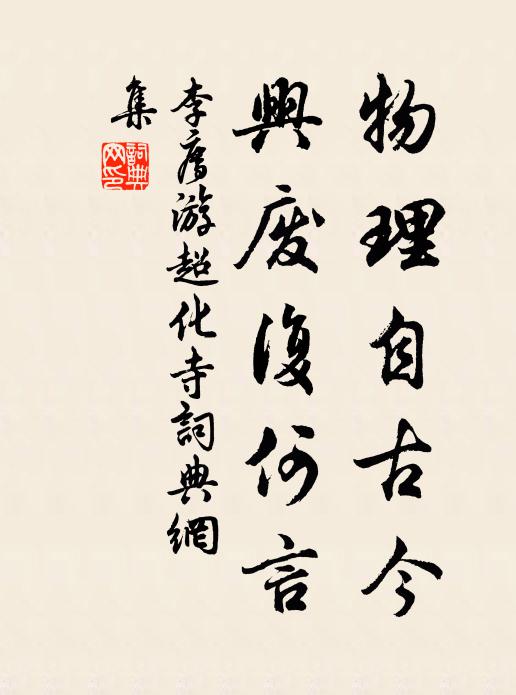 物理自古今
興废復何言
李廌游超化寺詞典網
集
詞典
网印